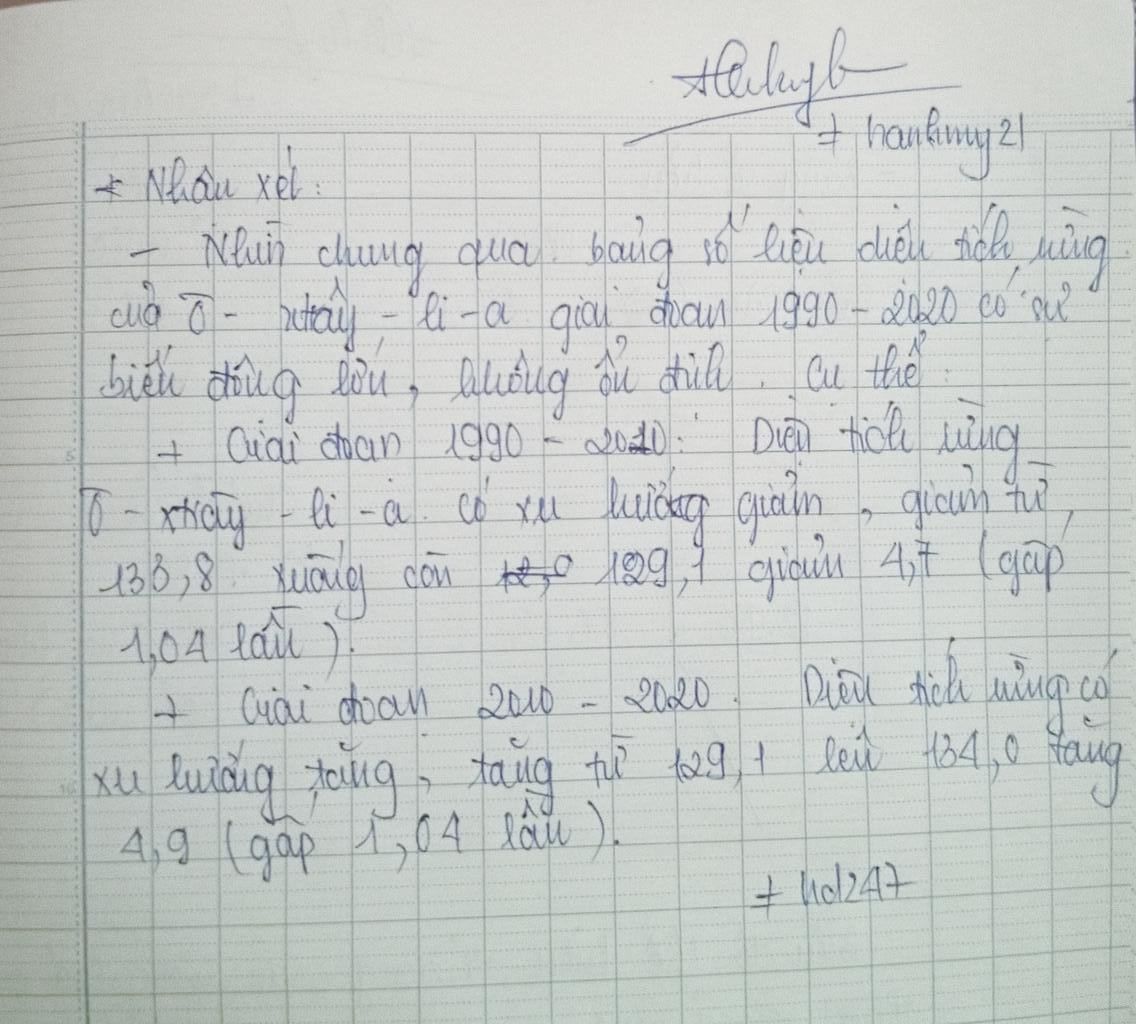 + hanhmy21
* Nhận xét:
- Nhìn chung qua bảng số liệu diện tích rừng
của Ô - xtrây - li - a giai đoạn 1990 - 2020 có sự
biến động lớn, không ổn định. Cụ thể:
+ Giai đoạn 1990 - 2010: Diện tích rừng
Ô - xtrây - li - a có xu hướng giảm, giảm từ
133,8 xuống còn 129,1 giảm 4,7 (gấp
1,04 lần).
+ Giai đoạn 2010 - 2020. Diện tích rừng có
xu hướng tăng, tăng từ 129,1 lên 134,0 tăng
4,9 (gấp 1,04 lần).
# hd247